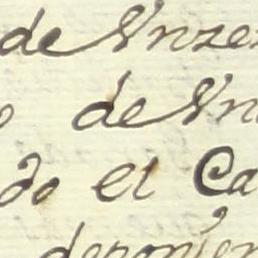 de Vnze
o de Vn
do el Ca
deponien